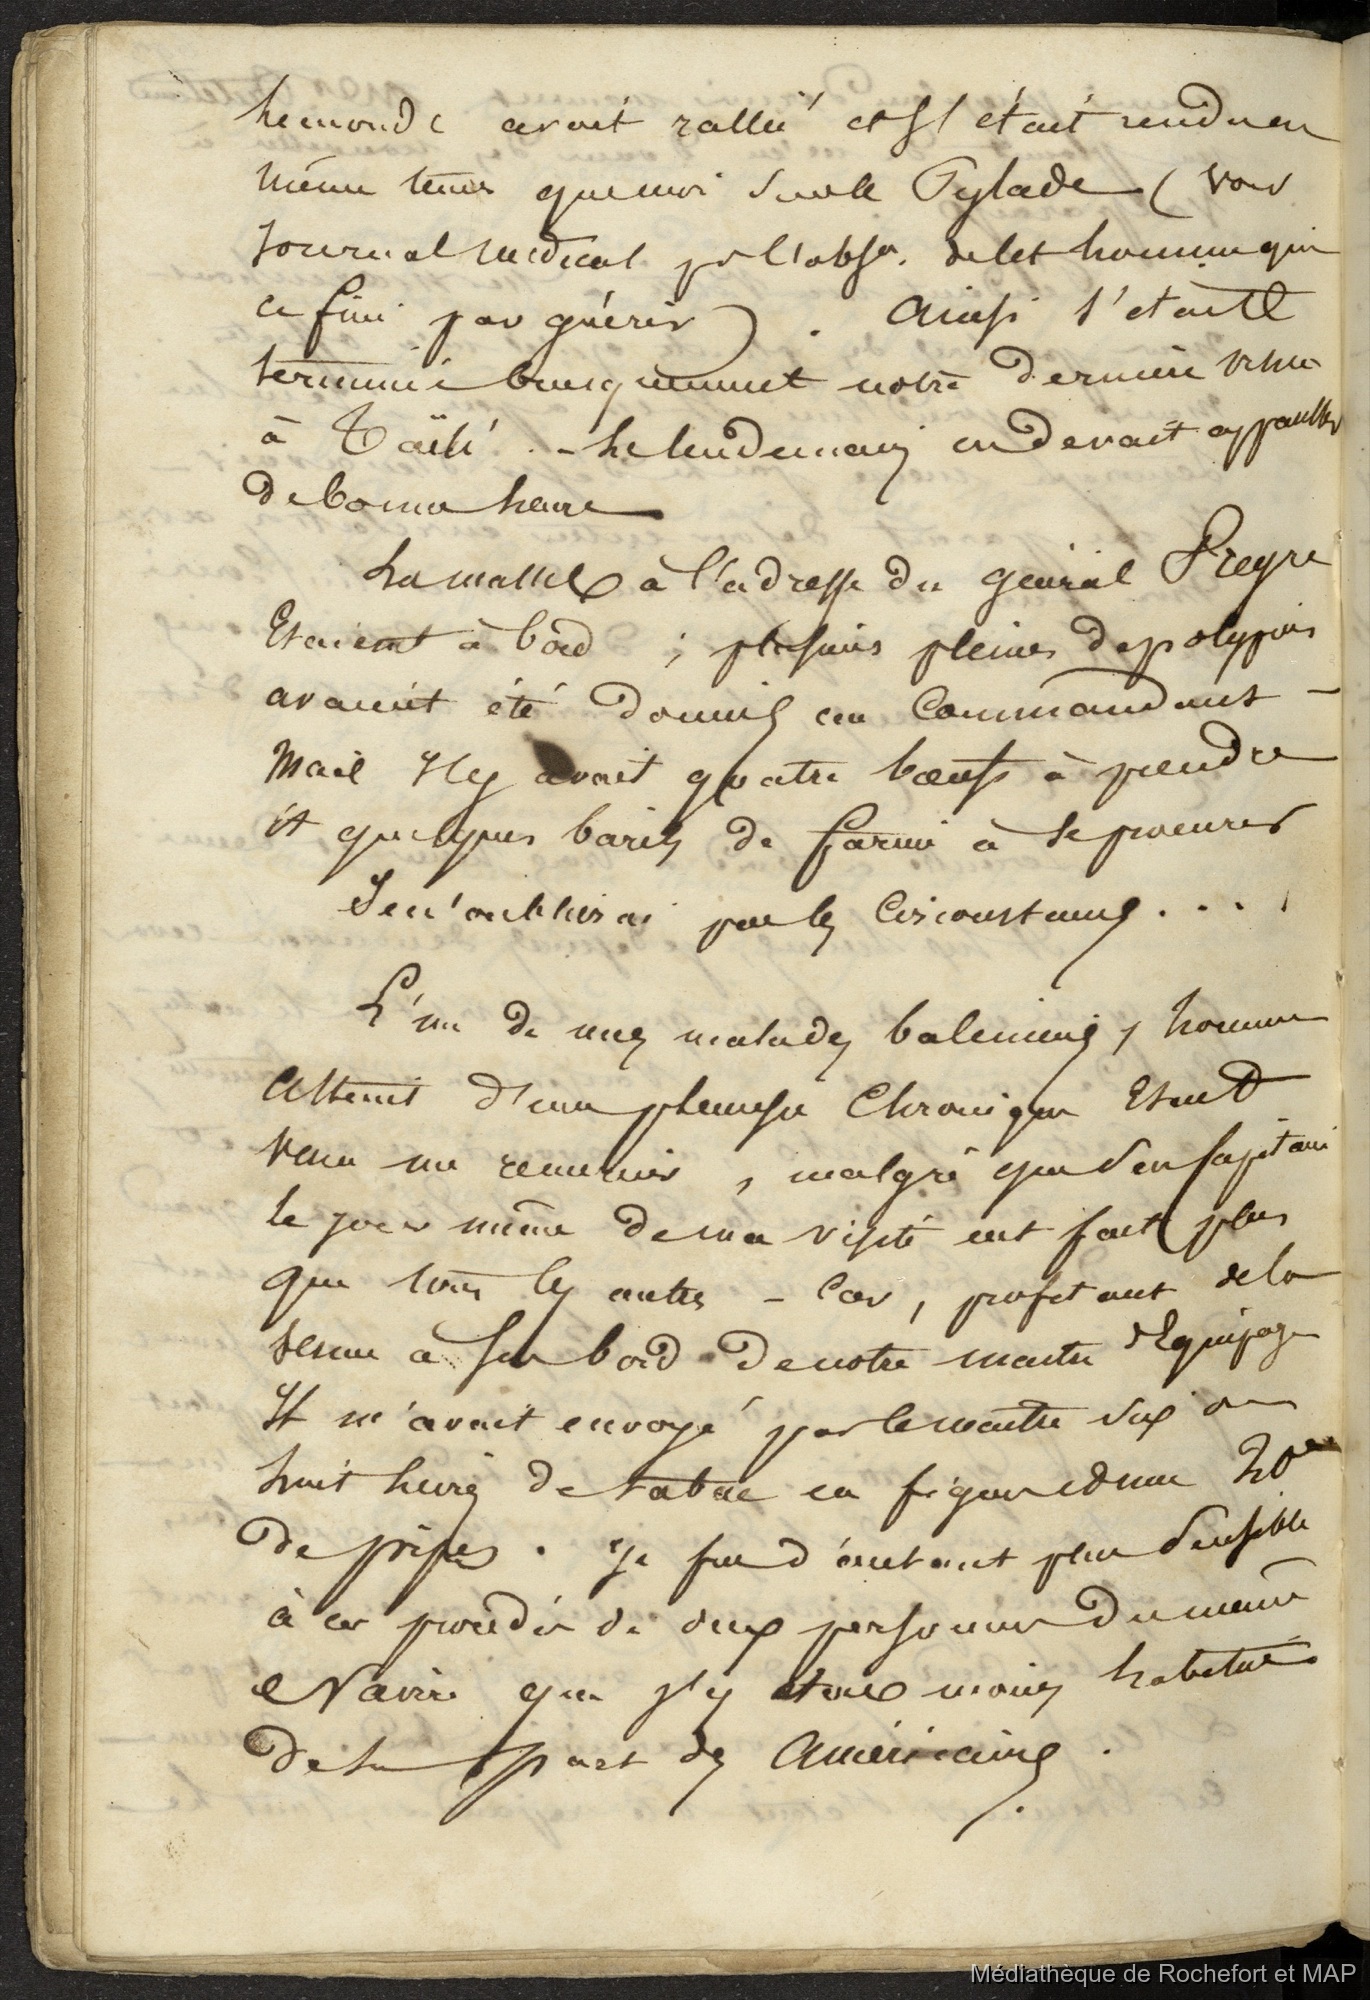 le monde avait rallié et s'était rendu en
même tems que moi sur le Pylade (voir
journal médical pr l'obson. de cet homme qui
a fini par guérir). Ainsi s'était
terminée brusquement notre dernière venue
à Taïti. - Le lendemain on devait appareiller
de bonne heure
La malle à l'adresse du général Freyre
Etaient à bord ; plusieurs pleines de polypiers
avaient été donnés au Commandant -
Mais il y avait quatre bœufs à prendre
et quelques barils de farine à se procurer
Je n'oublierai pas les circonstances . . . .
L'un de mes malades baleiniers, homme
Atteint d'une pleurésie Chronique Etait
venu me remercier, malgré que son Capitaine
le jour même de ma visite eut fait plus
que tous les autres - Car, profitant de la
venue à son bord de notre maître d'Equipage
Il m'avait envoyé par le maître six ou
huit livres de tabac en figue et une 20e
de pipes. Je fus d'autant plus sensible
à ces procédés de deux personnes du même
Navire que j'y étais moins habitué
de la part des Américains.
Médiathèque de Rochefort et MAP